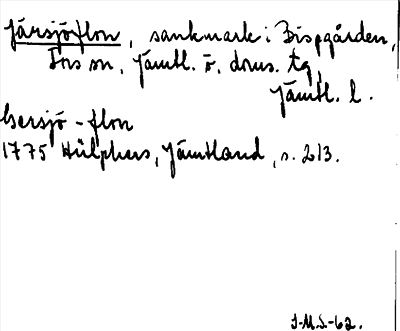 Järsjöflon, sankmark i Bispgården,
Fors sn, Jämtl. ö. doms. tg,
Jämtl. l.
Gersjö-flon
1775 Hülphers, Jämtland, s. 213.
J.M.S-62.